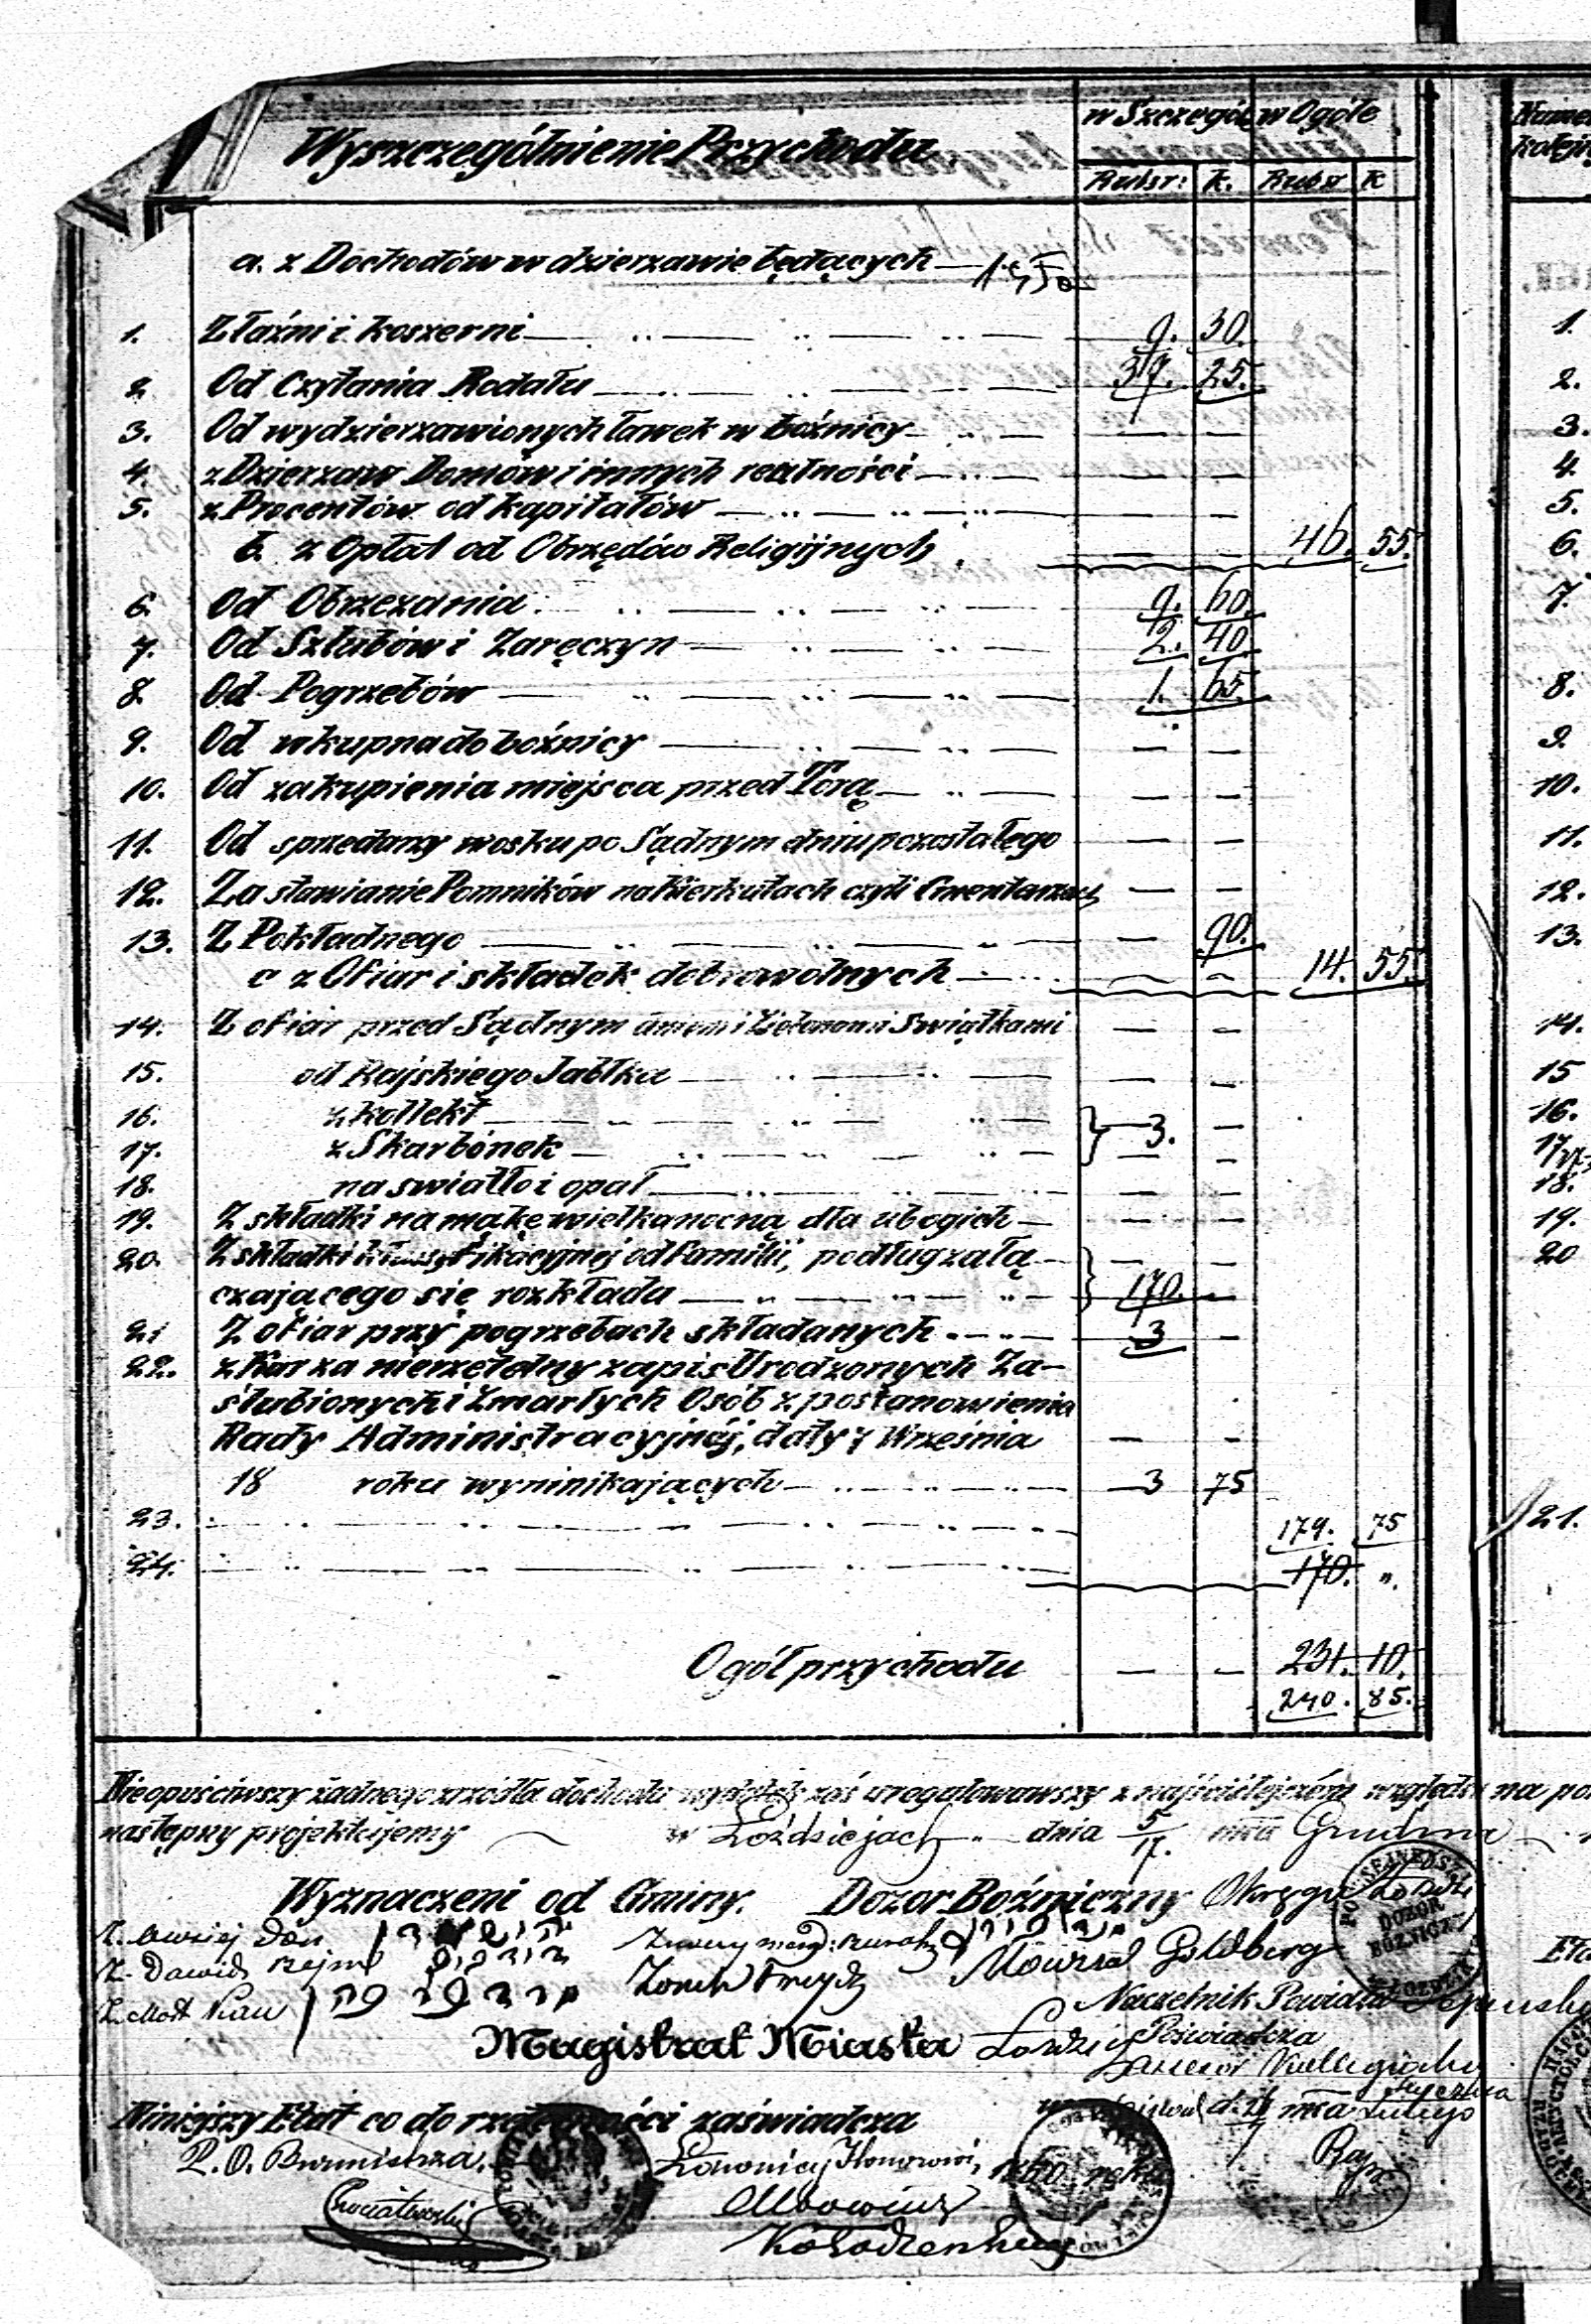 Wyszczególnienie Przychodu
w Szczegól. w Ogóle
Rubsr: k. Rubsr k
a. z Dochodów w dzierzawie będących
1. Z Łaźni i koszerni 9. 30.
2 Od Czytania Rodału 37. 25.
3. Od wydzierzawionych ławek w bóźnicy — —
4. z Dzierzaw Domów i innych realności — —
5. z Procentów od kapitałów — —
b. z Opłat od Obrzędów Religijnych — — 46. 55.
6. Od Obrzezania 9. 60.
7. Od Szlubów i Zaręczyn 2. 40.
8. Od Pogrzebów 1. 65.
9. Od wkupna do bóźnicy — —
10. Od zakupienia miejsca przed Torą — —
11. Od sprzedarzy wosku po Sądnym dniu pozostałego — —
12. Za stawianie Pomników na Kierkutach czyli Cmentarzach — —
13. Z Pokładnego — 90.
c z Ofiar i składek dobrowolnych — — 14. 55.
14. Z ofiar przed Sądnym dniem i Zielonemi Swiątkami — —
15. od Rajskiego Jabłka — —
16. z kollekt —
17. z Skarbónek } 3. —
18. na swiatło i opał — —
19. Z składki na mąkę wielkanocną dla ubogich — —
20. Z składki klassyfikacyjnej od Familii, podług załą-
czającego się rozkładu } 170. —
21 Z ofiar przy pogrzebach składanych 3 —
22. z Kar za nierzetelny zapis Urodzonych Za-
ślubionych i Zmarłych Osób z postanowienia
Rady Administracyjnéj, daty 7 Września — —
18 roku wyninikających 3 75
23. 179. 75
24. 170. „.
Ogół przychodu — — 231. 10.
240. 85.
Nieopuściwszy żadnego zrzódła dochodu wydatek zaś uregulowawszy z najściślejszém względem na
następny projektujemy w Łoździejach dnia 5/17. mca Grudnia
Wyznaczeni od Gminy. Dozor Bóżniczny Okręgu
Dawid
Goldberg
Naczelnik Powiatu
Magistrat Miasta
Poświadcza
Assesor Kollegialny
Niniejszy Etat co do rzetelności zaświadcza
P. O. Burmistrza.
Ławnicy Honorowi,
1860 roku
DOZOR
BÓŻNICZY
Namer
kolejn
1.
2.
3.
4.
5.
6.
7.
8.
9.
10.
11.
12.
13.
14.
15
16.
17
18.
19.
20
21.